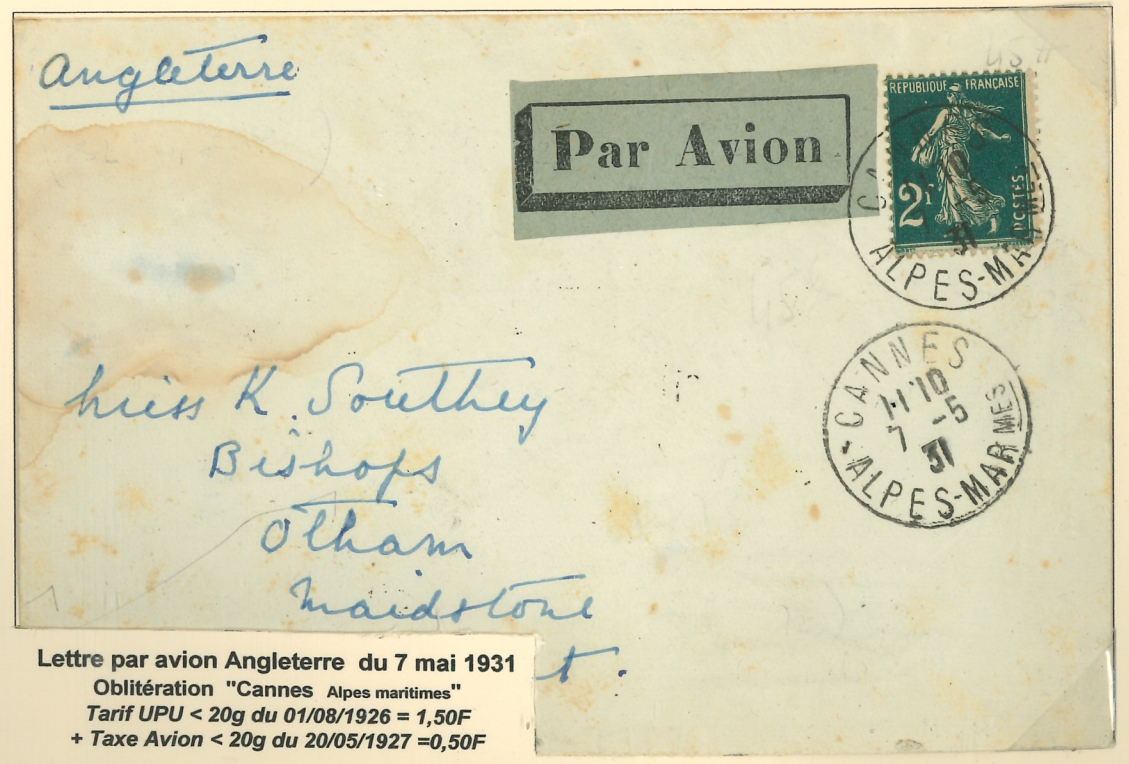 Angleterre
Par Avion
REPUBLIQUE FRANÇAISE
2f
POSTES
CA
ALPES-MAR MES
31
CANNES
11 10
7 -5
31
ALPES-MAR MES
Miss K. Southey
Bishops
Otham
Maidstone
t.
Lettre par avion Angleterre du 7 mai 1931
Oblitération "Cannes Alpes maritimes"
Tarif UPU < 20g du 01/08/1926 = 1,50F
+ Taxe Avion < 20g du 20/05/1927 =0,50F